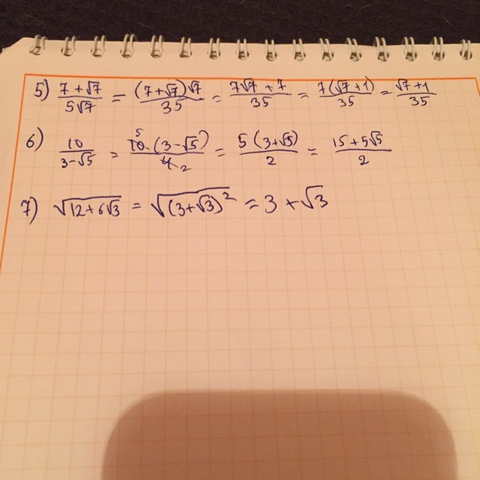 5) (7+√7)/(5√7) = ((7+√7)√7)/35 = (7√7+7)/35 = (7(√7+1))/35 = (√7+1)/35
6) 10/(3-√5) = (1̶0̶ 5 · (3-√5))/(4̶ 2) = (5(3+√5))/2 = (15+5√5)/2
7) √(12+6√3) = √((3+√3)²) = 3+√3